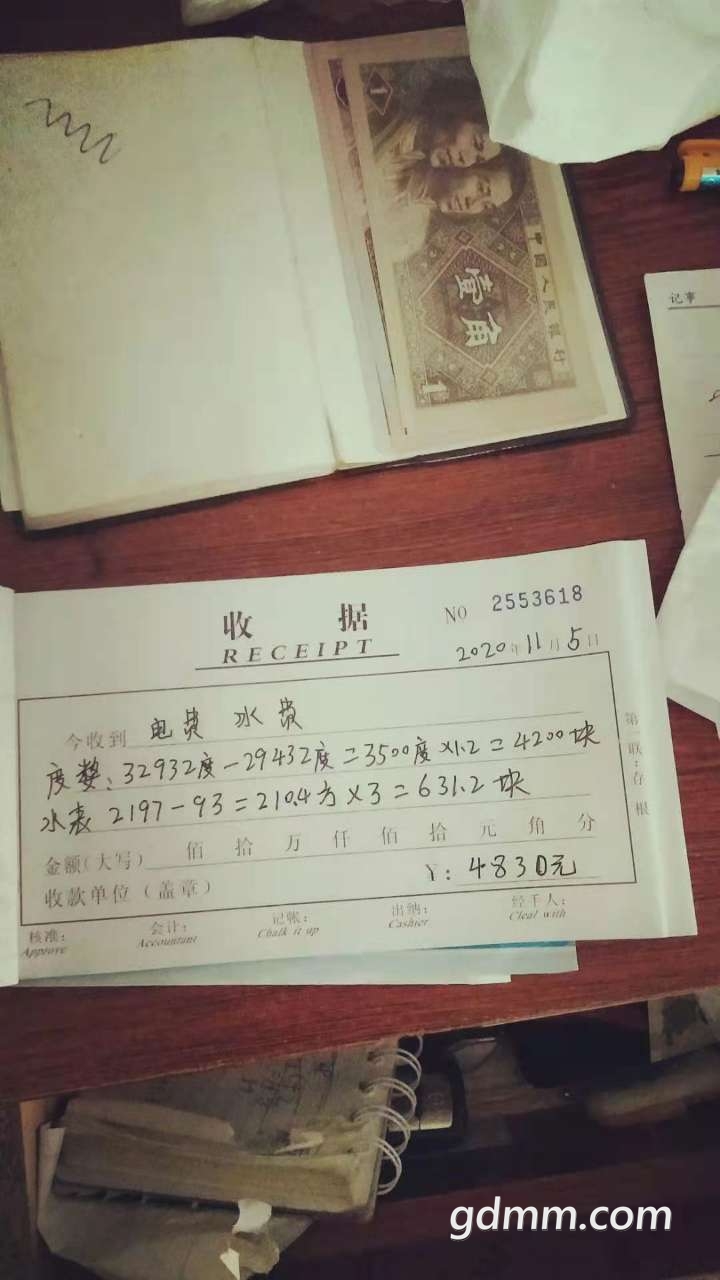 中国人民银行
壹角
1
记事
收 据
RECEIPT
NO 2553618
2020年11月5日
今收到 电费 水费
度数:32932度-29432度=3500度×1.2=4200块
水表 2197-93=2104方×3=631.2块
金额(大写) 佰 拾 万 仟 佰 拾 元 角 分
¥:4830元
收款单位(盖章)
第一联:存根
核准: 会计: 记帐: 出纳: 经手人:
Approve Accountant Chalk it up Cashier Cleal with
gdmm.com